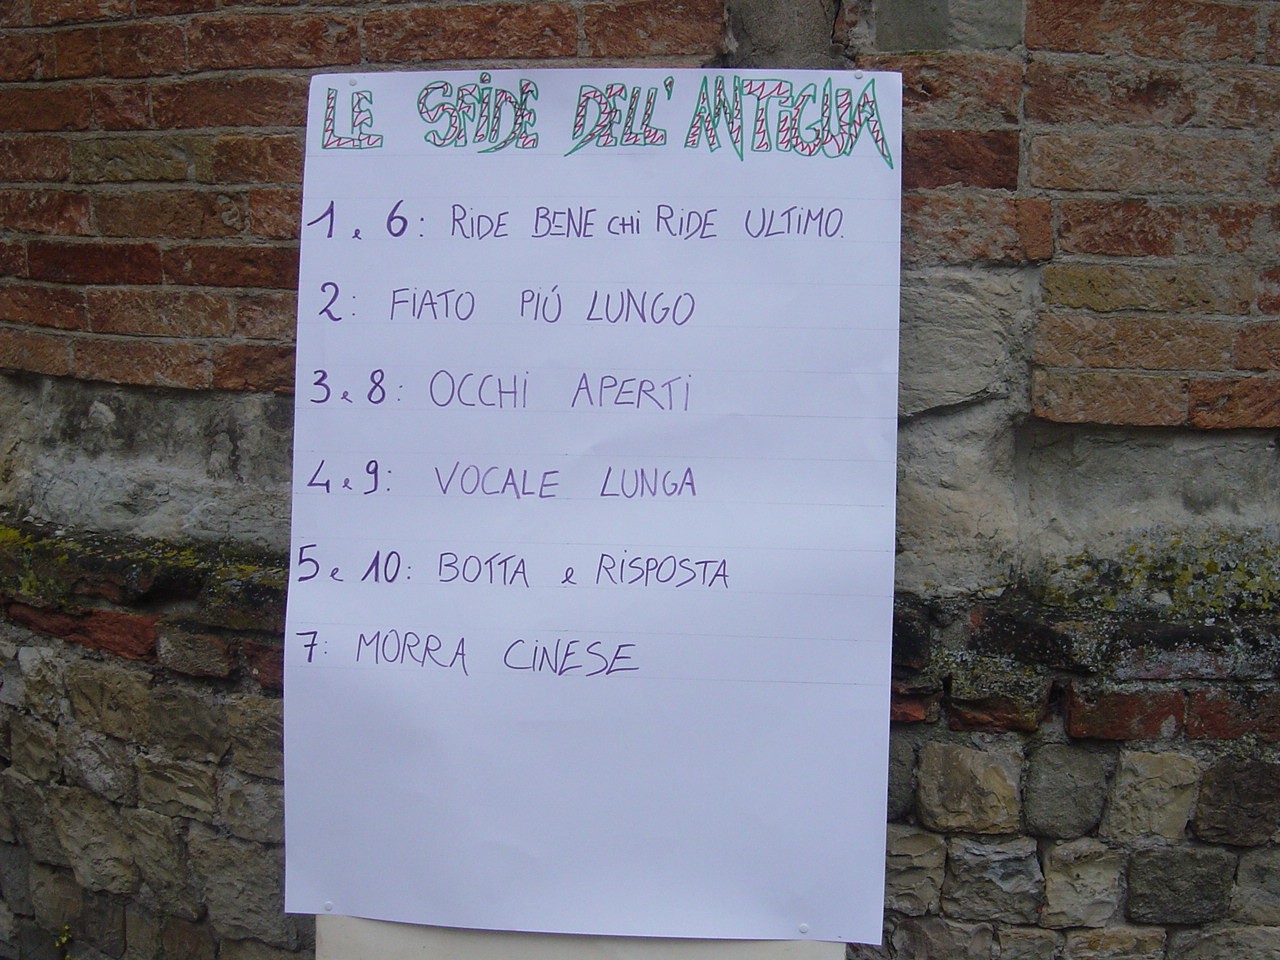 LE SFIDE DELL'ANTIGUA
1 e 6: RIDE BENE CHI RIDE ULTIMO.
2: FIATO PIÚ LUNGO
3 e 8: OCCHI APERTI
4 e 9: VOCALE LUNGA
5 e 10: BOTTA e RISPOSTA
7: MORRA CINESE